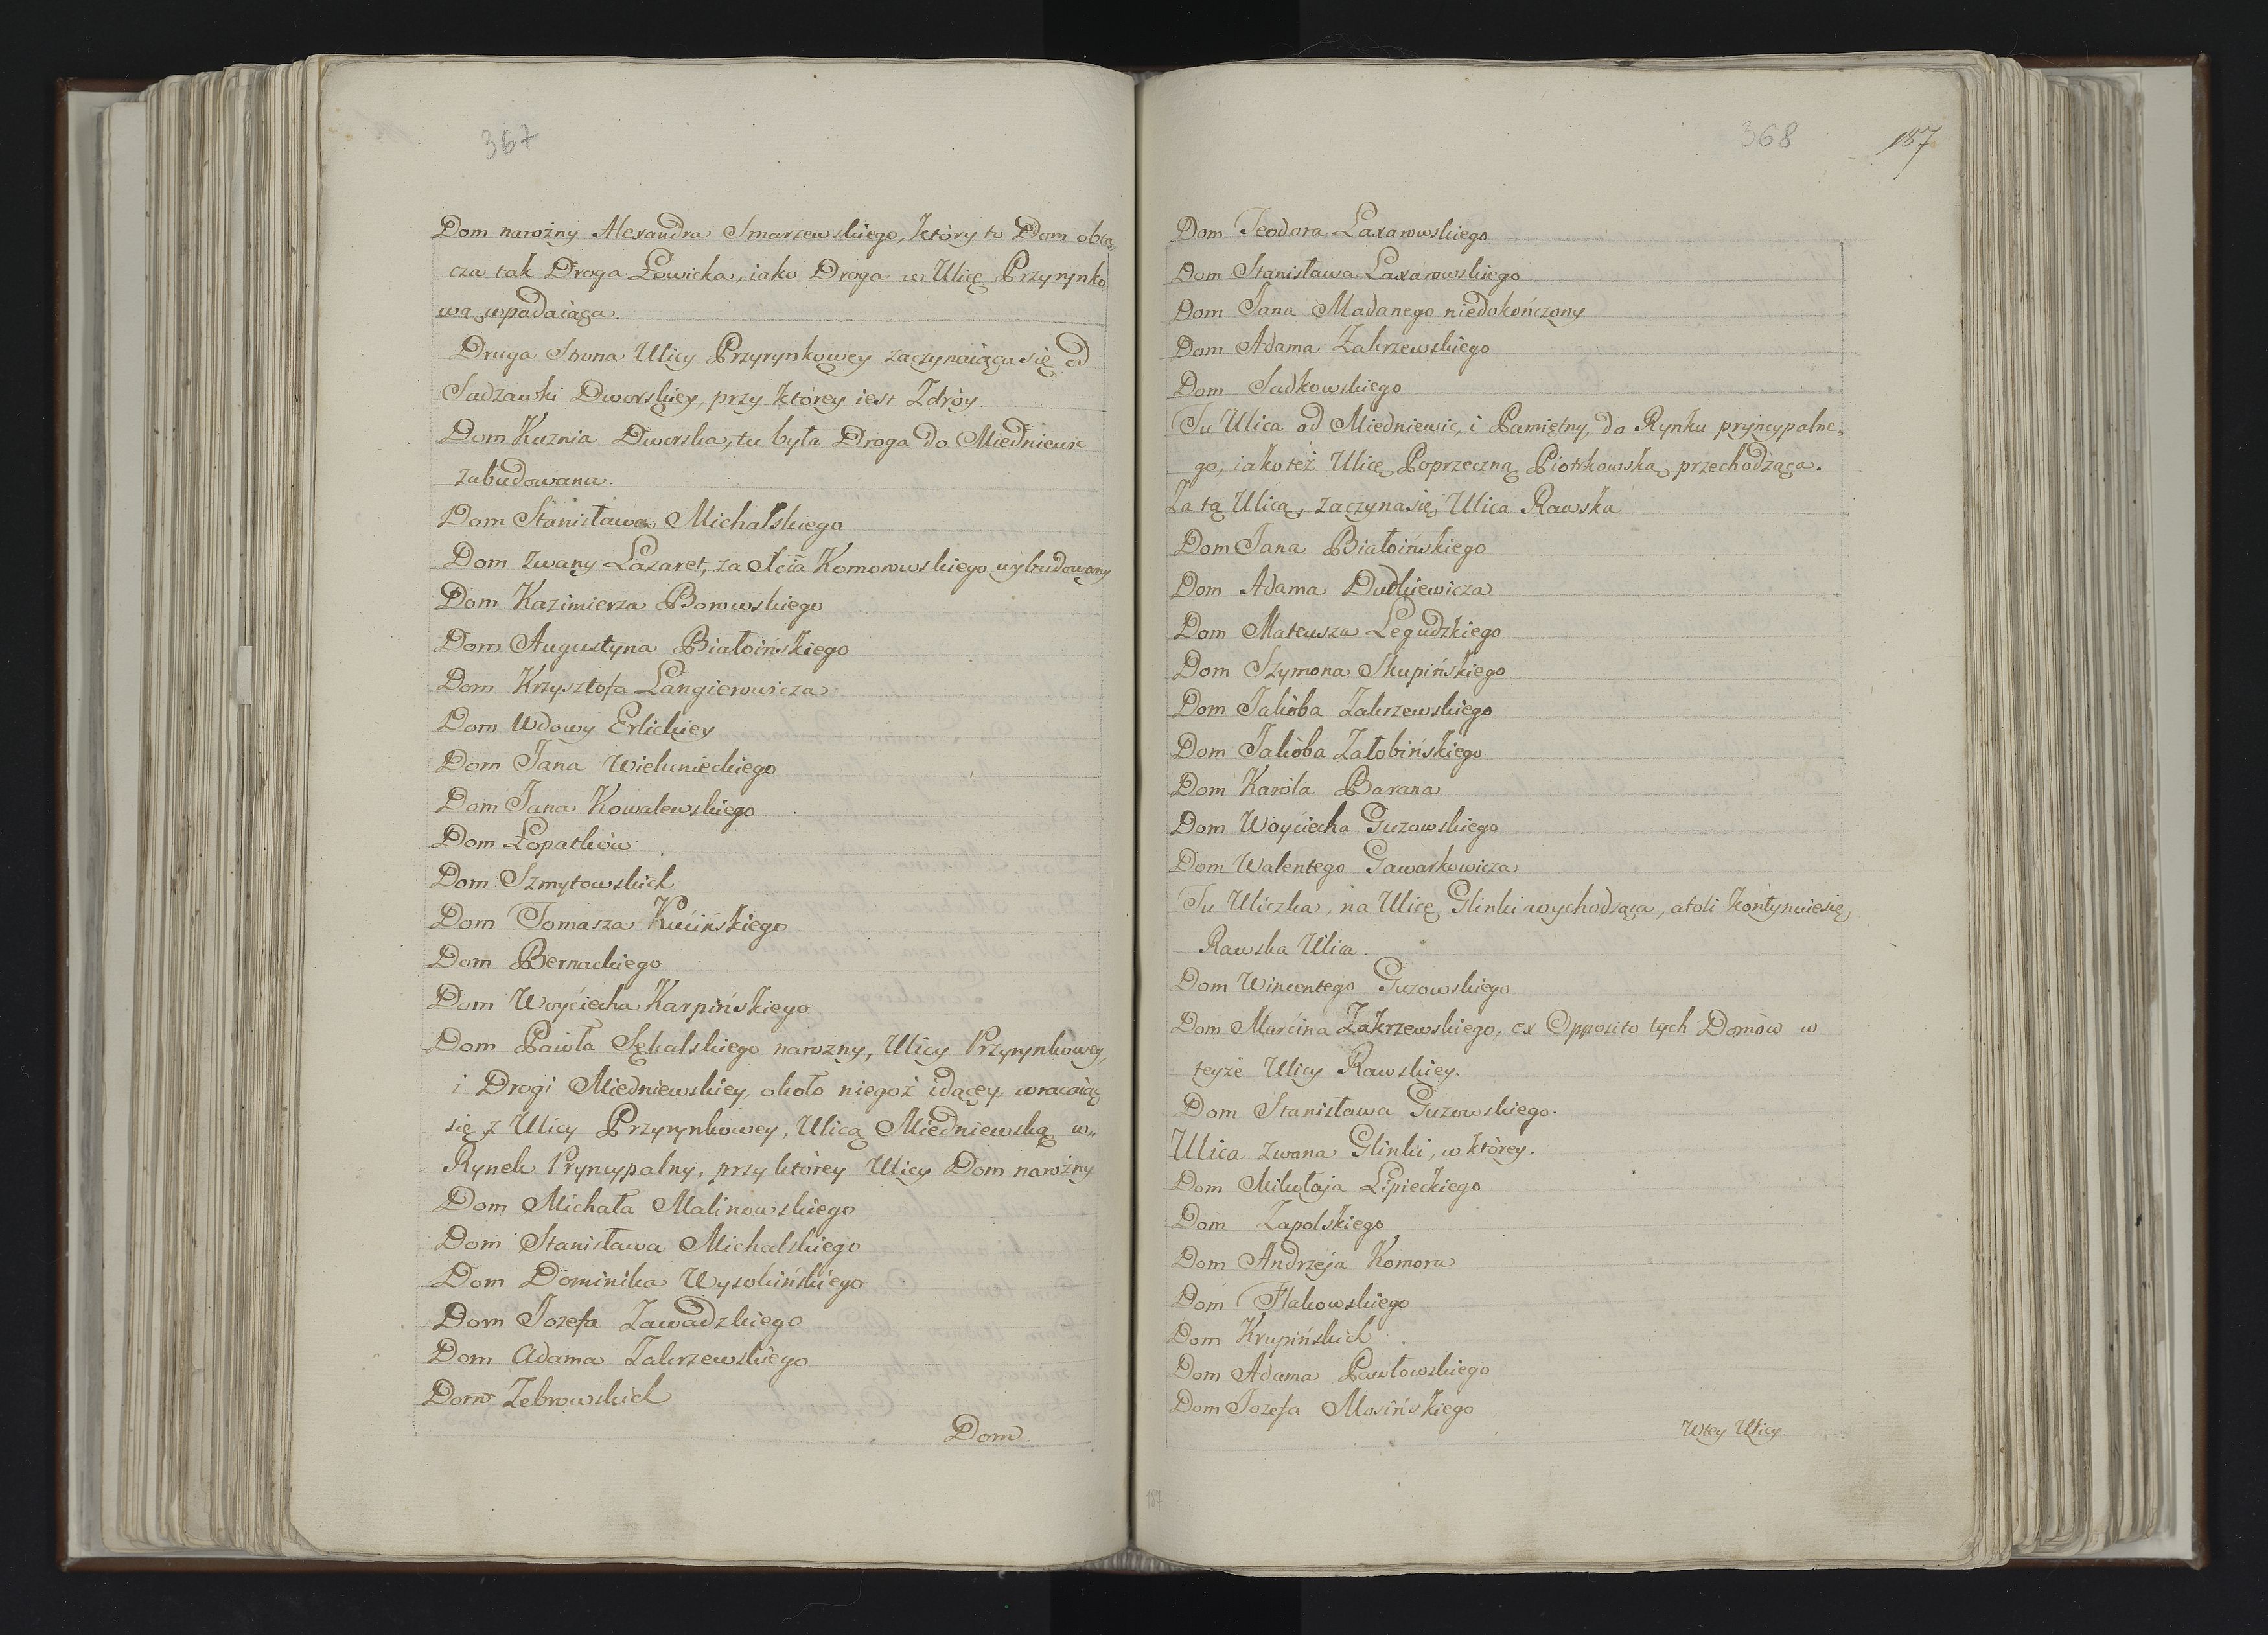 367
Dom narożny Alexandra Smarzewskiego, który to Dom obta
cza tak Droga Łowicka, iako Droga w Ulicę Przyrynko
wą wpadaiąca.
Druga Strona Ulicy Przyrynkowey zaczynaiąca się od
Sadzawki Dworskiey, przy którey iest Zdróy.
Dom Kuznia Dworska, tu była Droga do Miedniewic
zabudowana.
Dom Stanisława Michalskiego
Dom zwany Lazaret, za Xcia Komorowskiego wybudowany
Dom Kazimierza Borowskiego
Dom Augustyna Białoińskiego
Dom Krzysztofa Langierowicza
Dom Wdowy Erlickiey
Dom Jana Wielunieckiego
Dom Jana Kowalewskiego
Dom Łopatków
Dom Szmytowskich
Dom Tomasza
Dom Bernackiego
Dom Woyciecha Karpińskiego
Dom Pawła Sękalskiego narożny, Ulicy Przyrynkowey,
i Drogi Miedniewskiey, około niegoż idącey, wracaiąc
się z Ulicy Przyrynkowey, Ulicą Miedniewską w„
Rynek Pryncypalny, przy którey Ulicy Dom narożny
Dom Michała Malinowskiego
Dom Stanisława Michalskiego
Dom Dominika Wysokińskiego
Dom Jozefa Zawadzkiego
Dom Adama Zakrzewskiego
Dom Zebrowskich
Dom
368
187
Dom Teodora Laxarowskiego
Dom Stanisława Laxarowskiego
Dom Jana Madanego niedokończony
Dom Adama Zakrzewskiego
Dom Sadkowskiego
Tu Ulica od Miedniewic, i Pamiętny, do Rynku pryncypalne„
go, iako też Ulicę Poprzeczną Piotrkowską przechodząca.
Za tą Ulicą, zaczyna się Ulica Rawska
Dom Jana Białoińskiego
Dom Adama Dudkiewicza
Dom Mateusza Legudzkiego
Dom Szymona Skupińskiego
Dom Jakóba Zakrzewskiego
Dom Jakóba Załobińskiego
Dom Karola Barana
Dom Woyciecha Guzowskiego
Dom Walentego Gawarkowicza
Tu Uliczka, na Ulicę Glinki wychodząca, atoli kontynuie się
Rawska Ulica.
Dom Wincentego Guzowskiego
Dom Marcina Zakrzewskiego, ex Opposito tych Domów w
teyże Ulicy Rawskiey.
Dom Stanisława Guzowskiego.
Ulica zwana Glinki, w którey.
Dom Mikołaja Lipieckiego
Dom Zapolskiego
Dom Andrzeja Komora
Dom Flakowskiego
Dom Krupińskich
Dom Adama Pawłowskiego
Dom Jozefa Mosińskiego
W tey Ulicy.
187